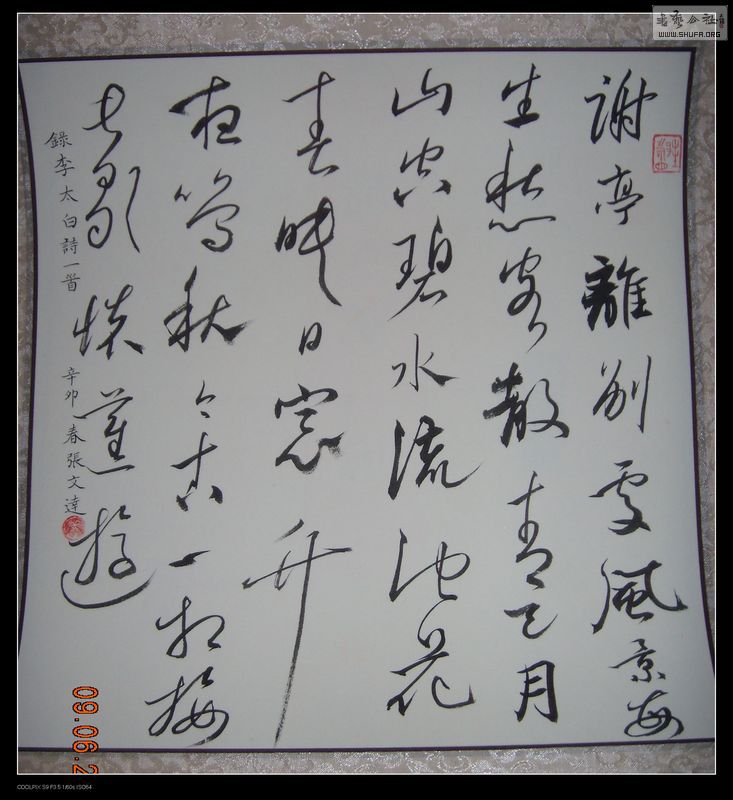 書藝公社
WWW.SHUFA.ORG
謝亭離别處風景每
生愁客散青天月
山空碧水流池花
春映日窓竹
夜鳴秋今古一相接
長歌懷舊遊
錄李太白詩一首 辛卯春張文達
09.06.2
COOLPIX S9 F3.5 1/60s ISO64